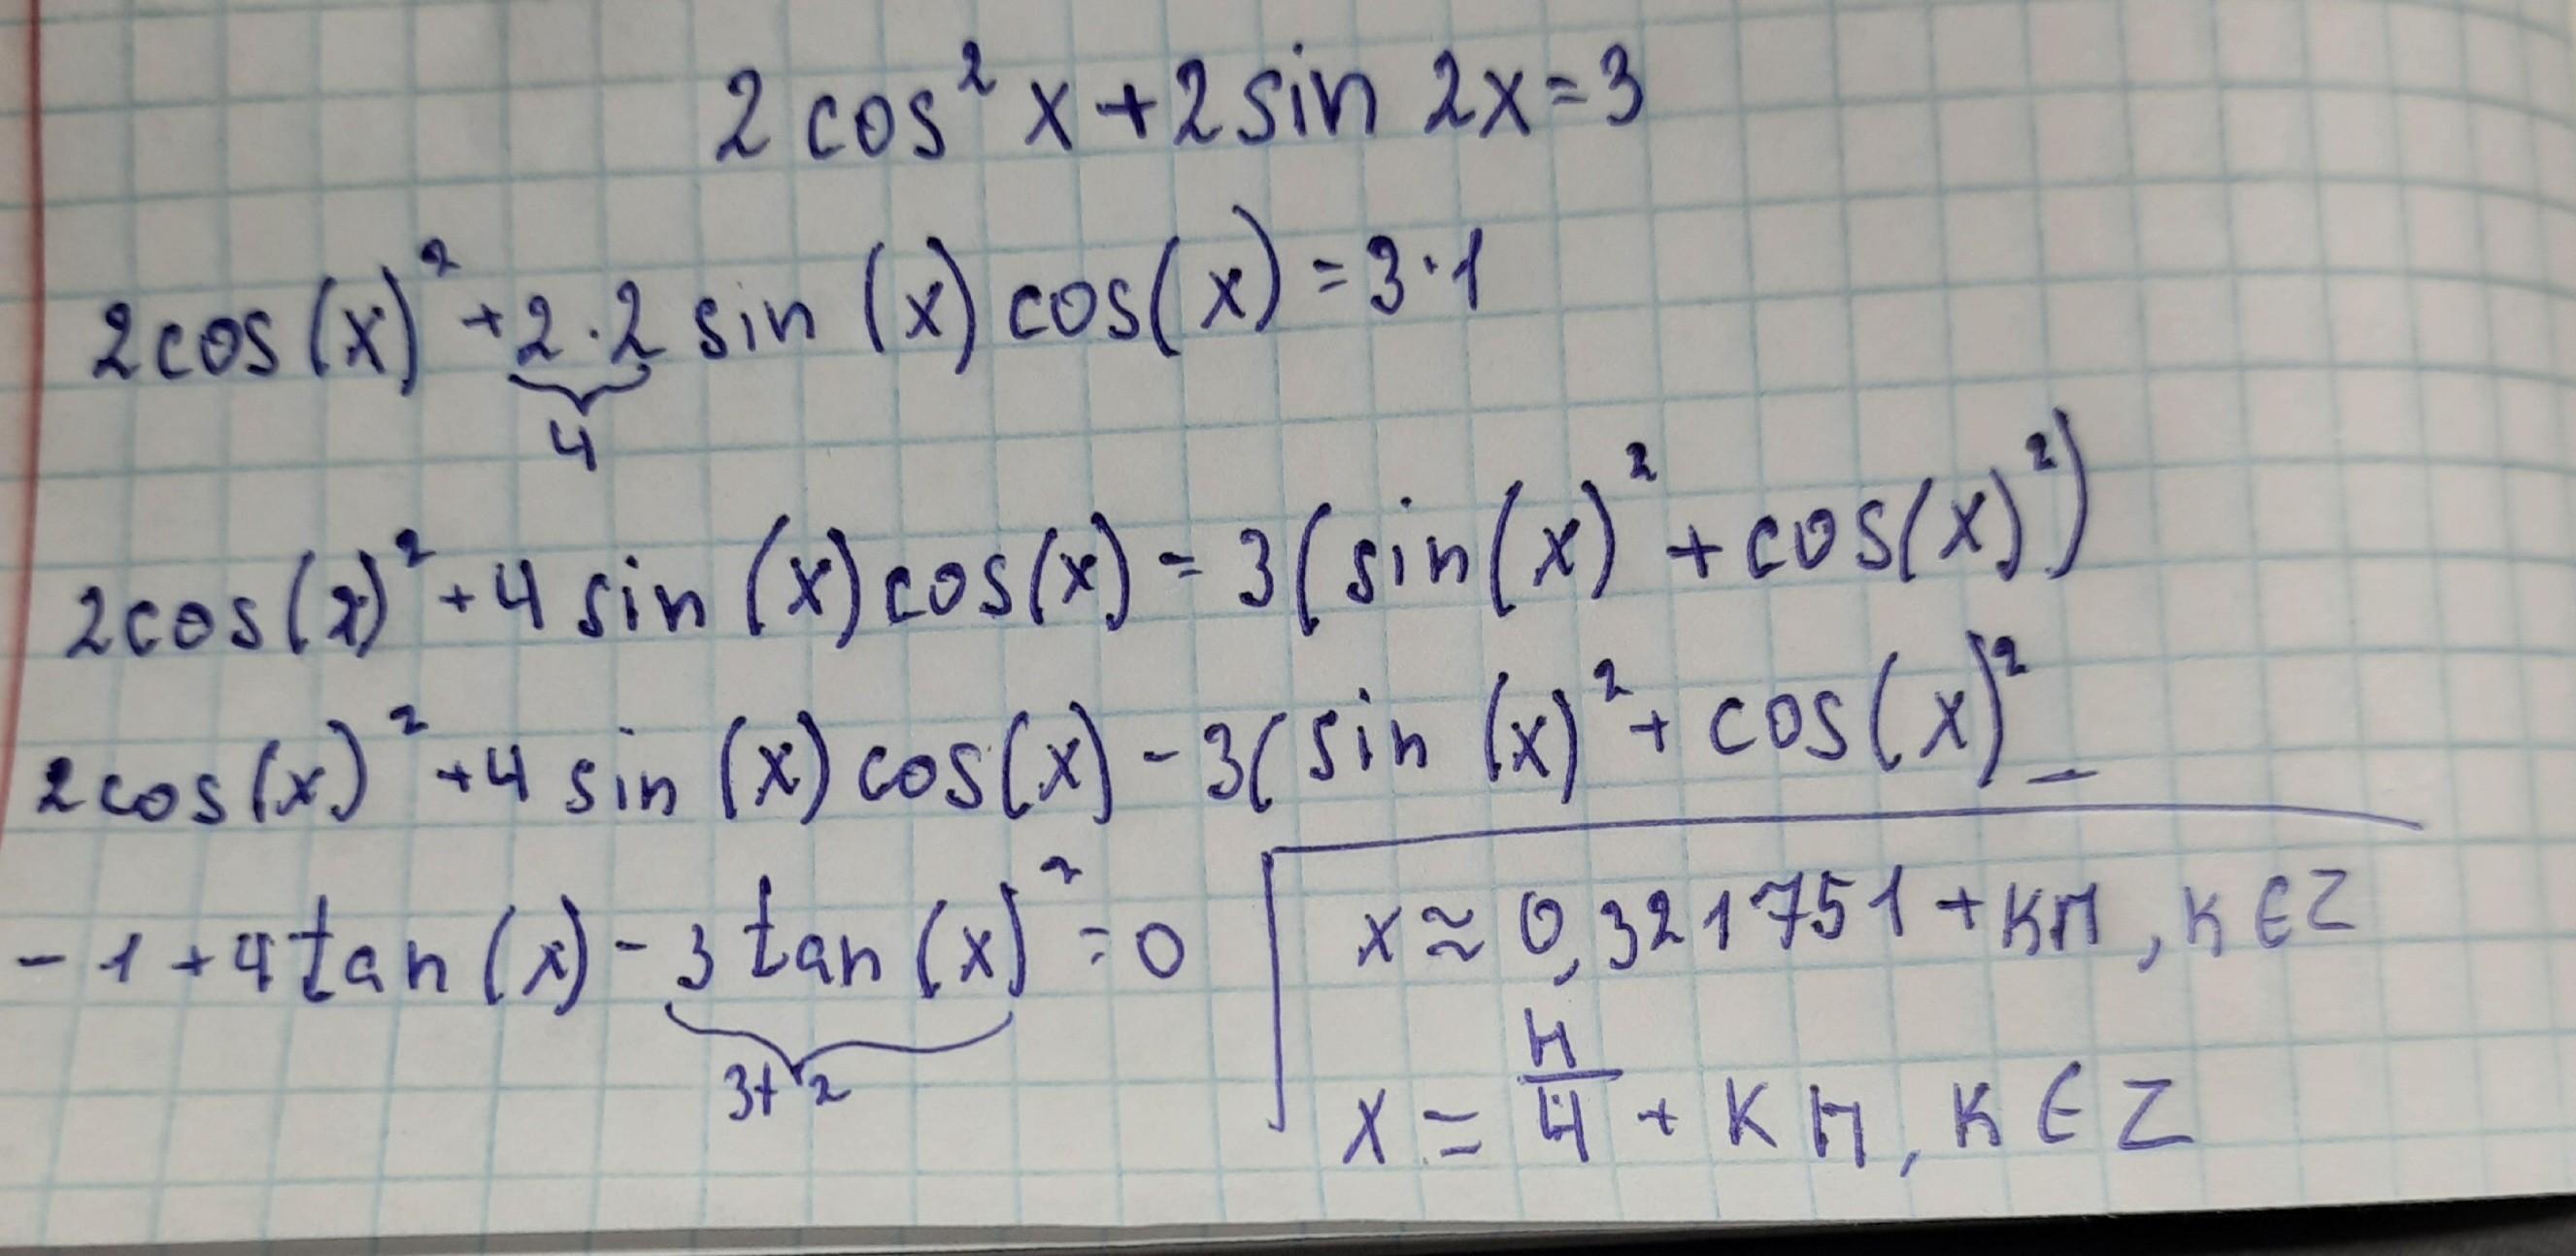 2cos² x+2sin 2x=3
2cos(x)²+2·2 sin (x) cos(x)=3·1
4
2cos(x)²+4 sin (x) cos(x)=3(sin(x)²+cos(x)²)
2cos(x)²+4 sin (x) cos(x)-3(sin (x)²+cos(x)²-
-1+4tan(x)-3tan(x)²=0
3t²
x≈0,321751+kπ, k∈Z
x=π/4+kπ, k∈Z